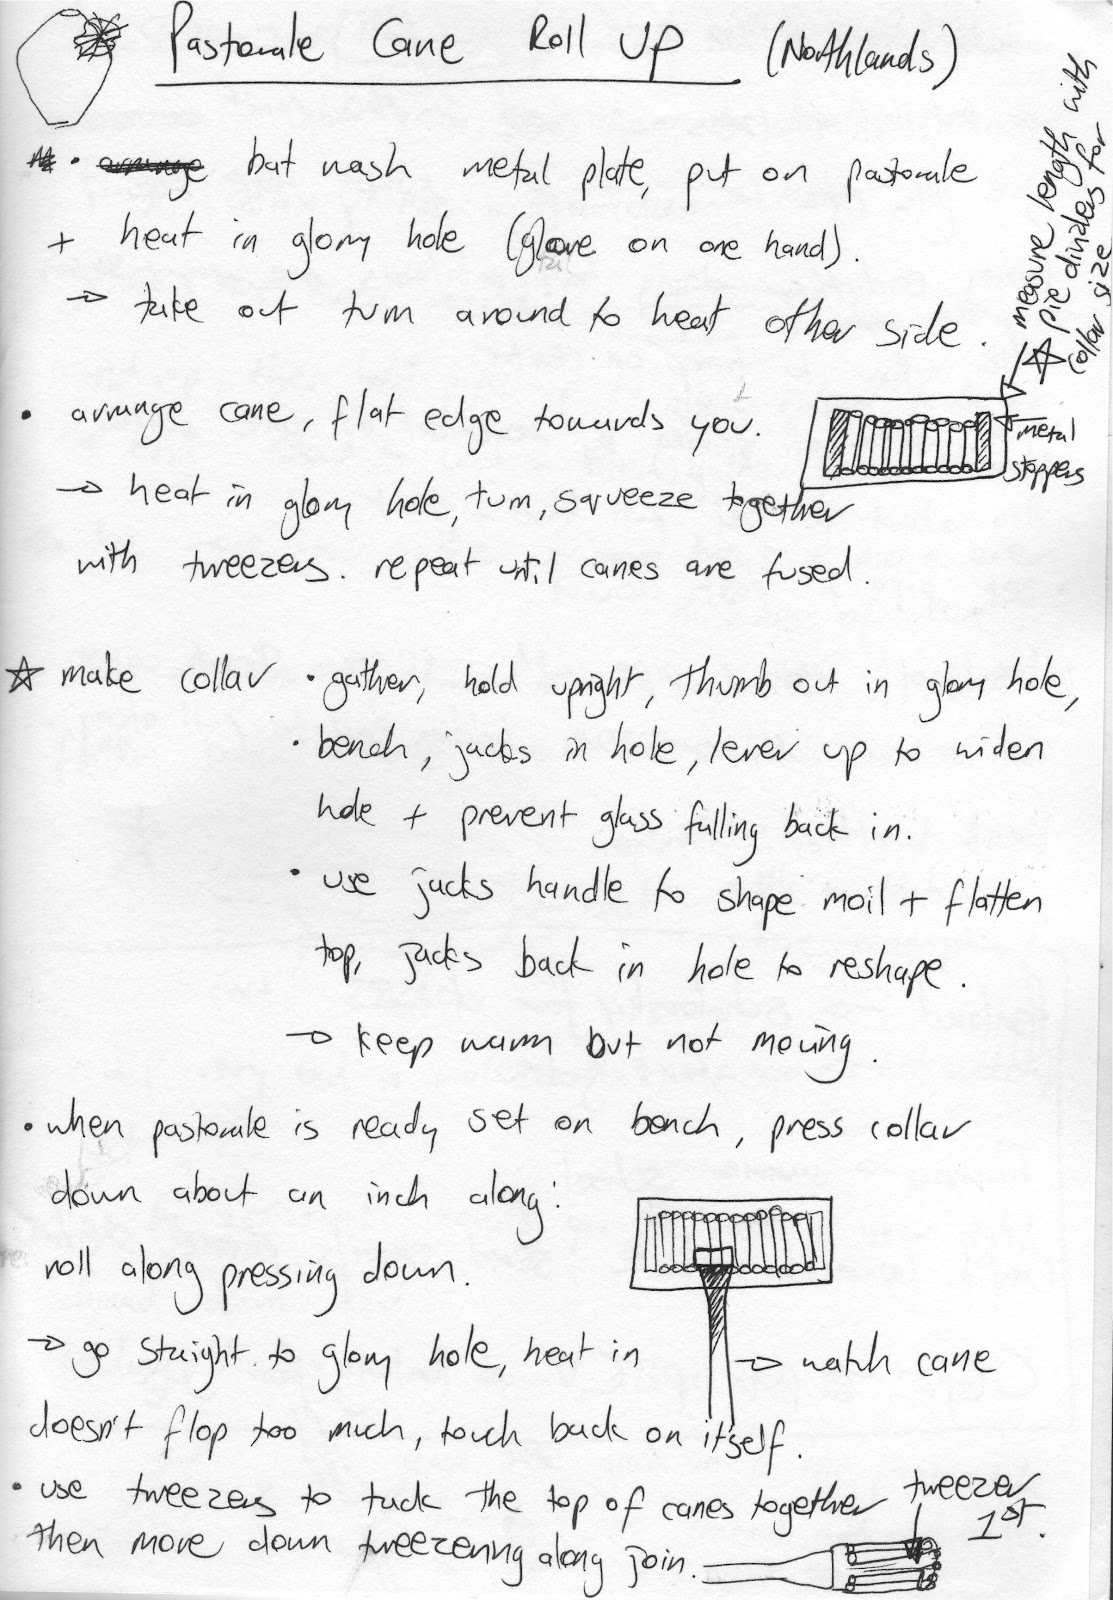 Pastorale Cane Roll Up (Northlands)
• bat wash metal plate, put on pastorale
+ heat in glory hole (glove on one hand).
→ take out turn around to heat other side.
☆ measure length with
pie dividers for
collar size
• arrange cane, flat edge towards you.
metal
stoppers
→ heat in glory hole, turn, squeeze together
with tweezers. repeat until canes are fused.
☆ make collar • gather, hold upright, thumb out in glory hole,
• bench, jacks in hole, lever up to widen
hole + prevent glass falling back in.
• use jacks handle to shape moil + flatten
top, jacks back in hole to reshape.
→ keep warm but not moving.
• when pastorale is ready set on bench, press collar
down about an inch along:
roll along pressing down.
→ go straight to glory hole, heat in → watch cane
doesn't flop too much, touch back on itself.
• use tweezers to tuck the top of canes together
then move down tweezering along join.
tweezer
1st.